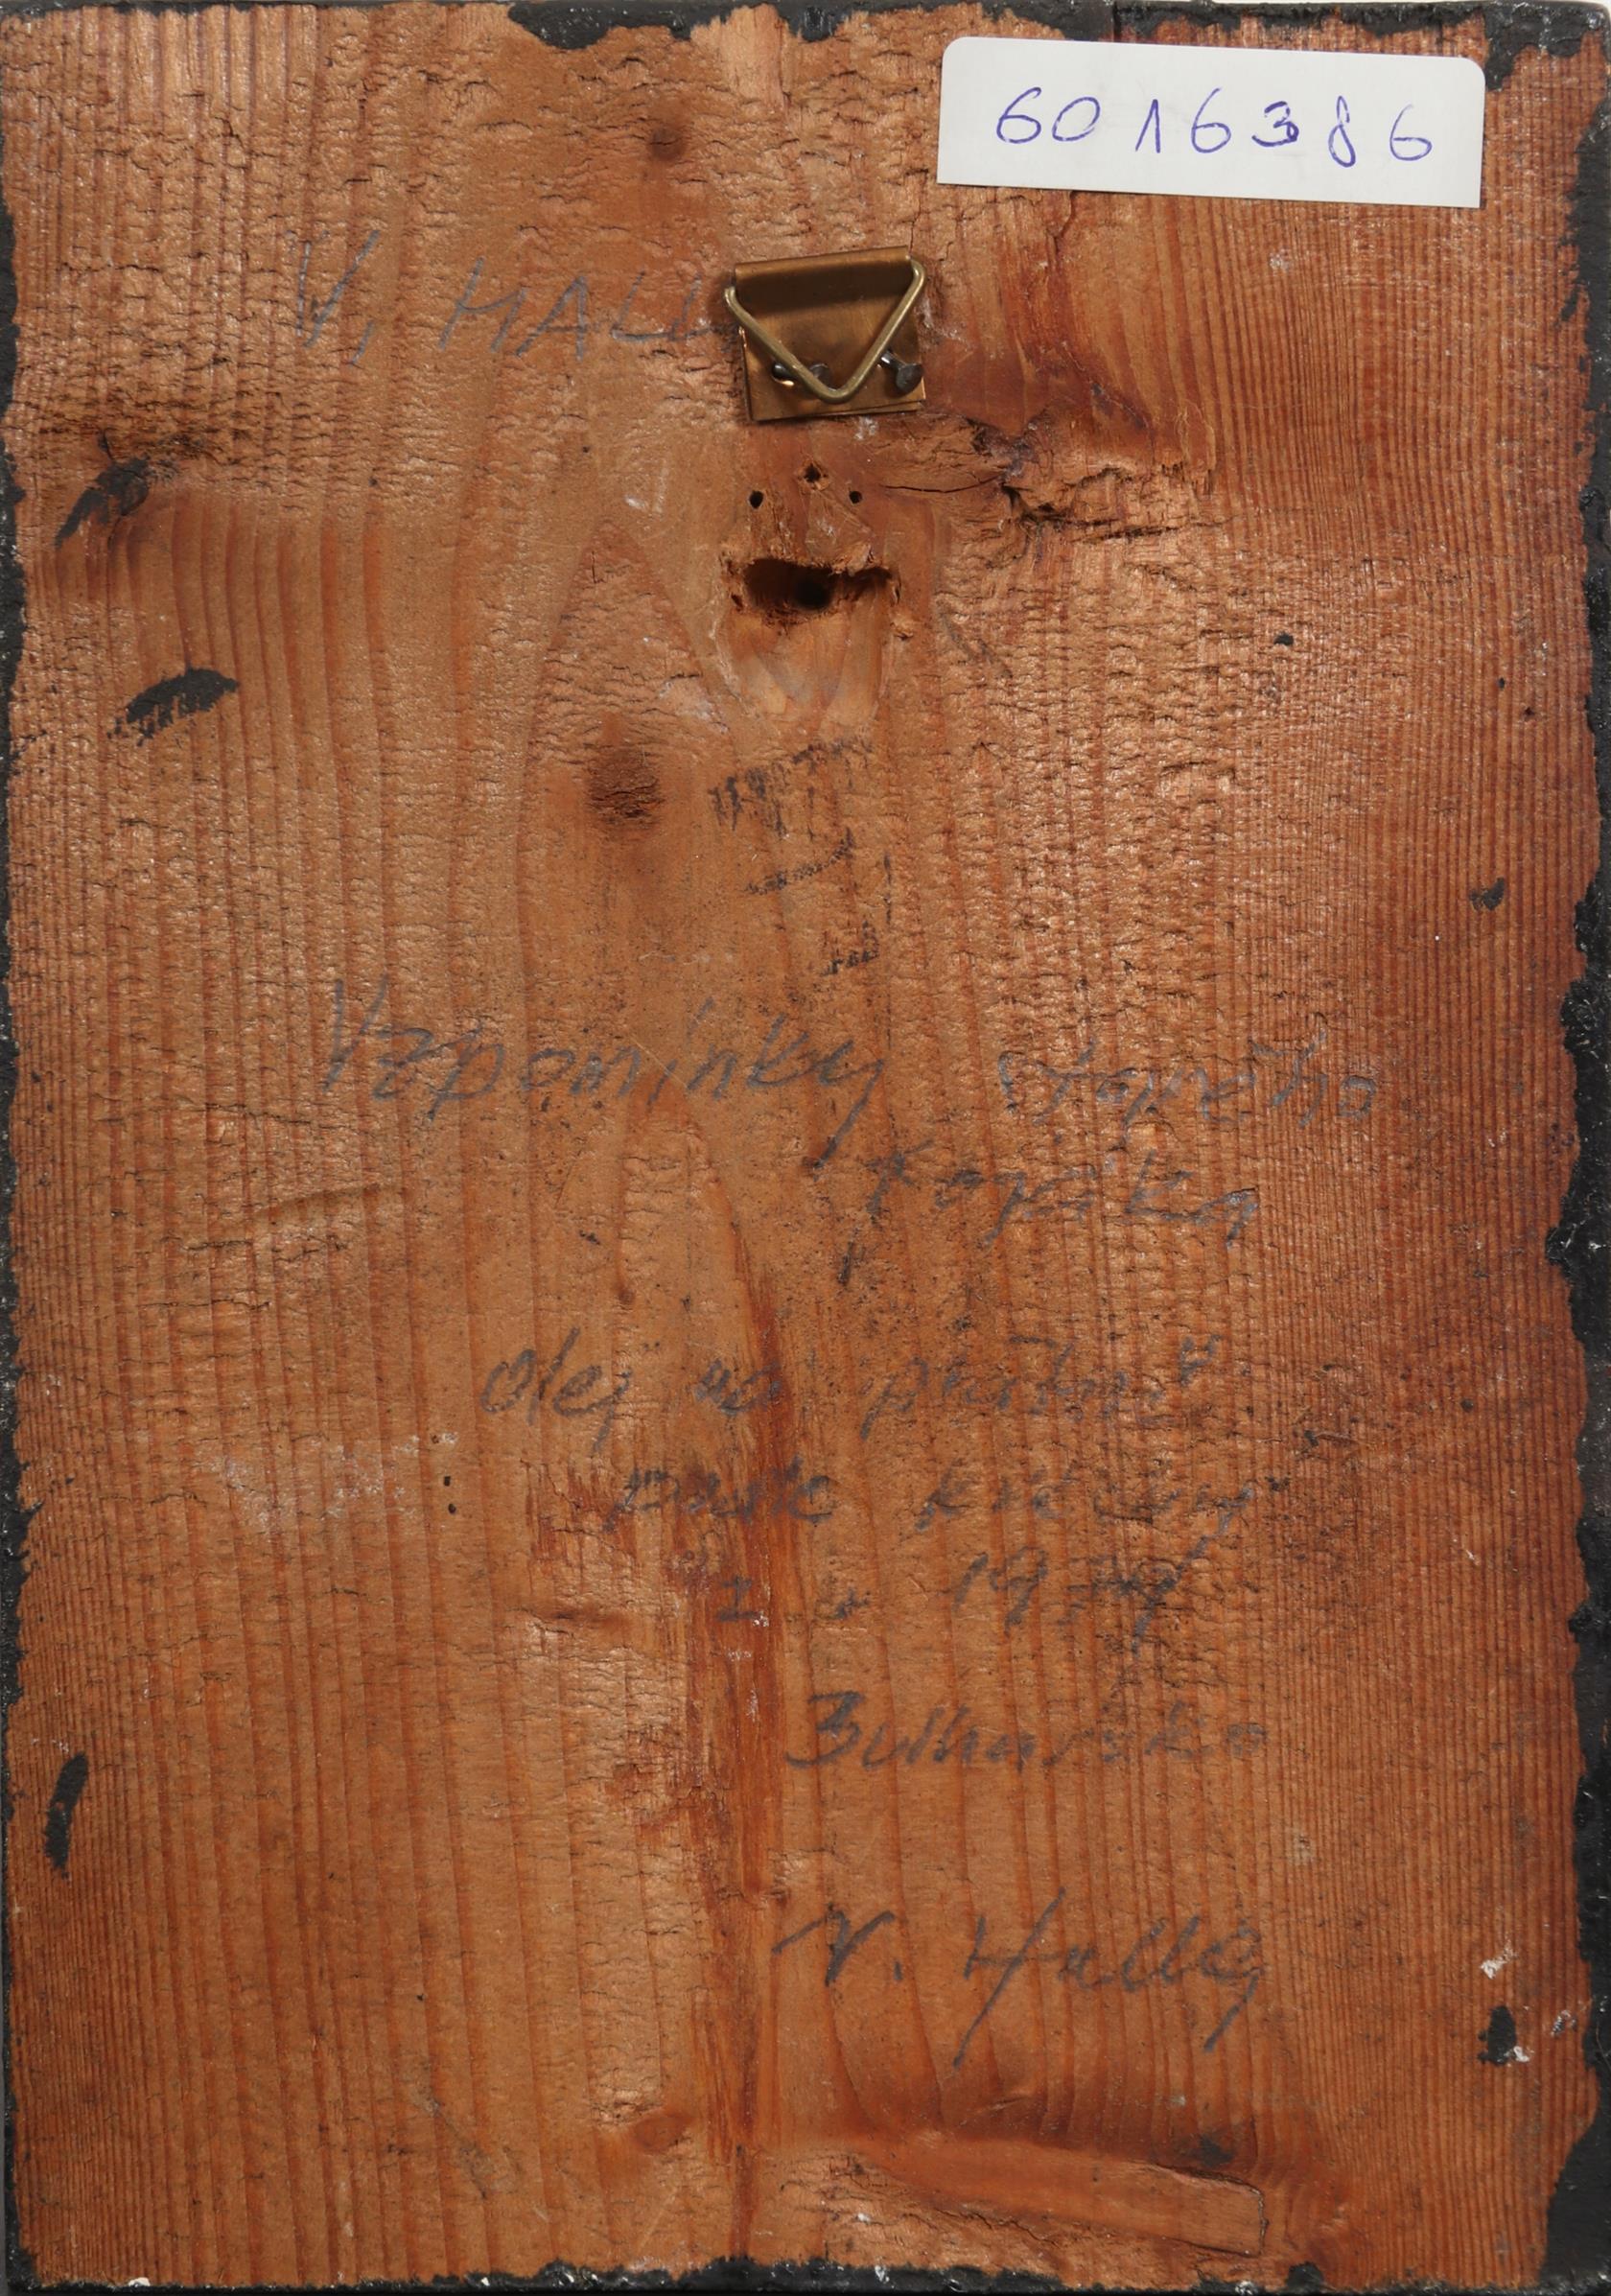 6016386
V. HALL
Vzpomínky starého
kozáka
olej na plátně
1977
Bulharsko
V. Hallý